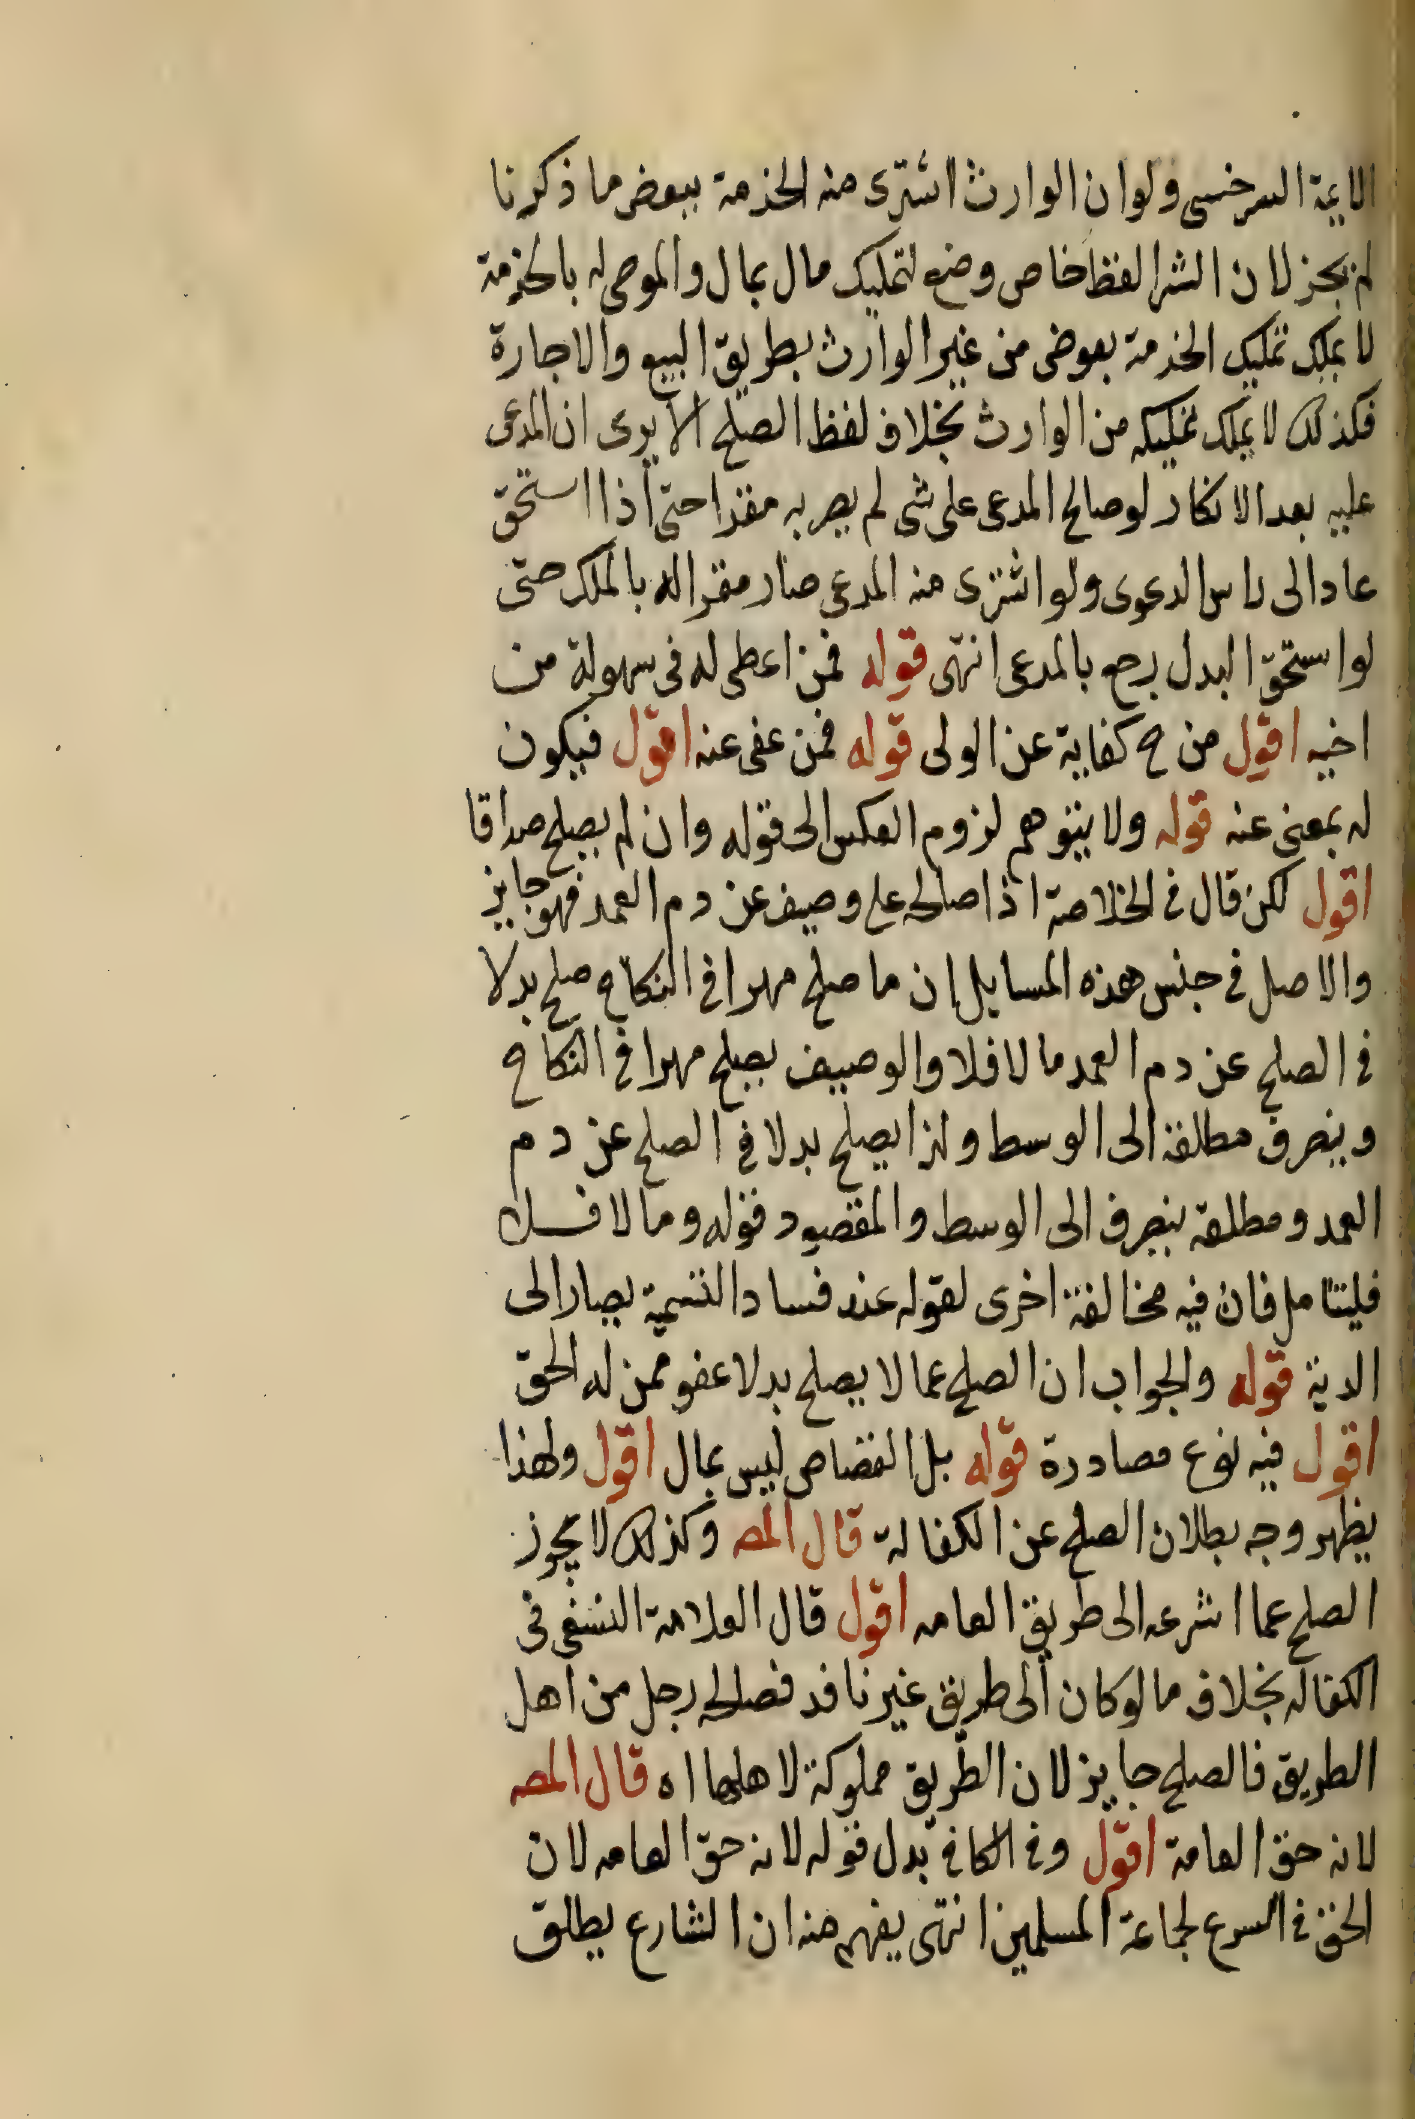 الايمة السرخسى ولو ان الوارث اشترى منه الخدمة ببعض ما ذكرنا
لم يجز لان الشرا لفظ خاص وضع لتمليك مال بمال والموصى له بالخدمة
لا يملك تمليك الخدمة بعوض من غير الوارث بطريق البيع والاجارة
فكذلك لا يملك تمليكه من الوارث بخلاف لفظ الصلح الا يرى ان المدعى
عليه بعد الانكار لو صالح المدعى على شى لم يصر به مقرا حتى اذا استحق
عاد الى راس الدعوى ولو اشترى منه المدعى صار مقرا له بالملك حتى
لو استحق البدل رجع بالمدعى انتهى قوله فمن اعطى له فى سهولة من
اخيه اقول من ح كفاية عن الولى قوله فمن عفى عنه اقول فيكون
له بمعنى عنه قوله ولا يتوهم لزوم العكس الى قوله وان لم يصلح صداقا
اقول لكن قال فى الخلاصة اذا صالحه على وصيف عن دم العمد فهو جايز
والاصل فى جنس هذه المسايل ان ما صلح مهرا فى النكاح صلح بدلا
فى الصلح عن دم العمد ما لا فلا والوصيف يصلح مهرا فى النكاح
وينصرف مطلقة الى الوسط ولذا يصلح بدلا فى الصلح عن دم
العمد ومطلقة ينصرف الى الوسط والمقصود قوله وما لا فــلا
فليتامل فان فيه مخالفة اخرى لقوله عند فساد التسمية يصار الى
الدية قوله والجواب ان الصلح عما لا يصلح بدلا عفو ممن له الحق
اقول فيه نوع مصادرة قوله بل القصاص ليس بمال اقول ولهذا
يظهر وجه بطلان الصلح عن الكفالة قال المص وكذلك لا يجوز
الصلح عما اشرعه الى طريق العامه اقول قال العلامة النسفى فى
الكفاله بخلاف ما لو كان الى طريق غير نافد فصالحه رجل من اهل
الطريق فالصلح جايز لان الطريق مملوكة لاهلها اه قال المصه
لانه حق العامة اقول وفى الكافى بدل قوله لانه حق العامه لان
الحق فى الشرع لجماعة المسلمين انتهى يفهم منه ان الشارع يطلق